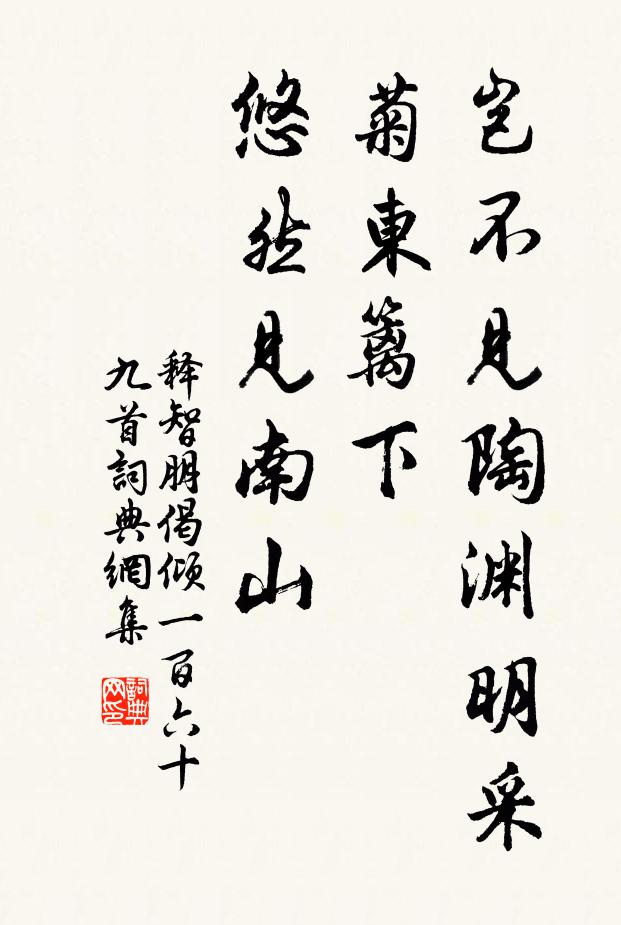 岂不见陶渊明采
菊東篱下
悠然见南山
释智朋偈倾一百六十
九首詞典網集
詞典网印